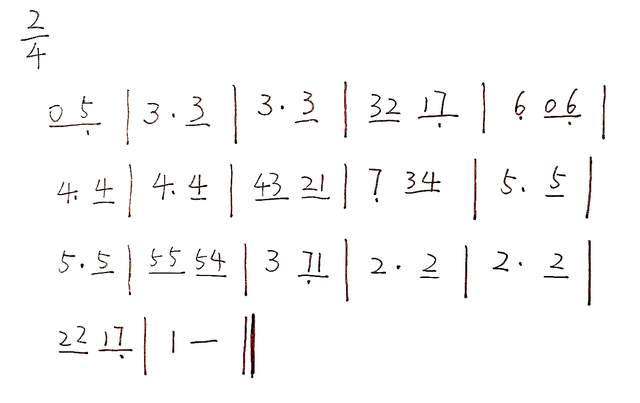 2/4
0 5̣ | 3 . 3 | 3 . 3 | 32 17̣ | 6̣ 0 6̣ |
4. 4 | 4. 4 | 43 21 | 7̣ 34 | 5. 5 |
5. 5 | 55 54 | 3 7̣1 | 2 . 2 | 2 . 2 |
22 17̣ | 1 — ‖